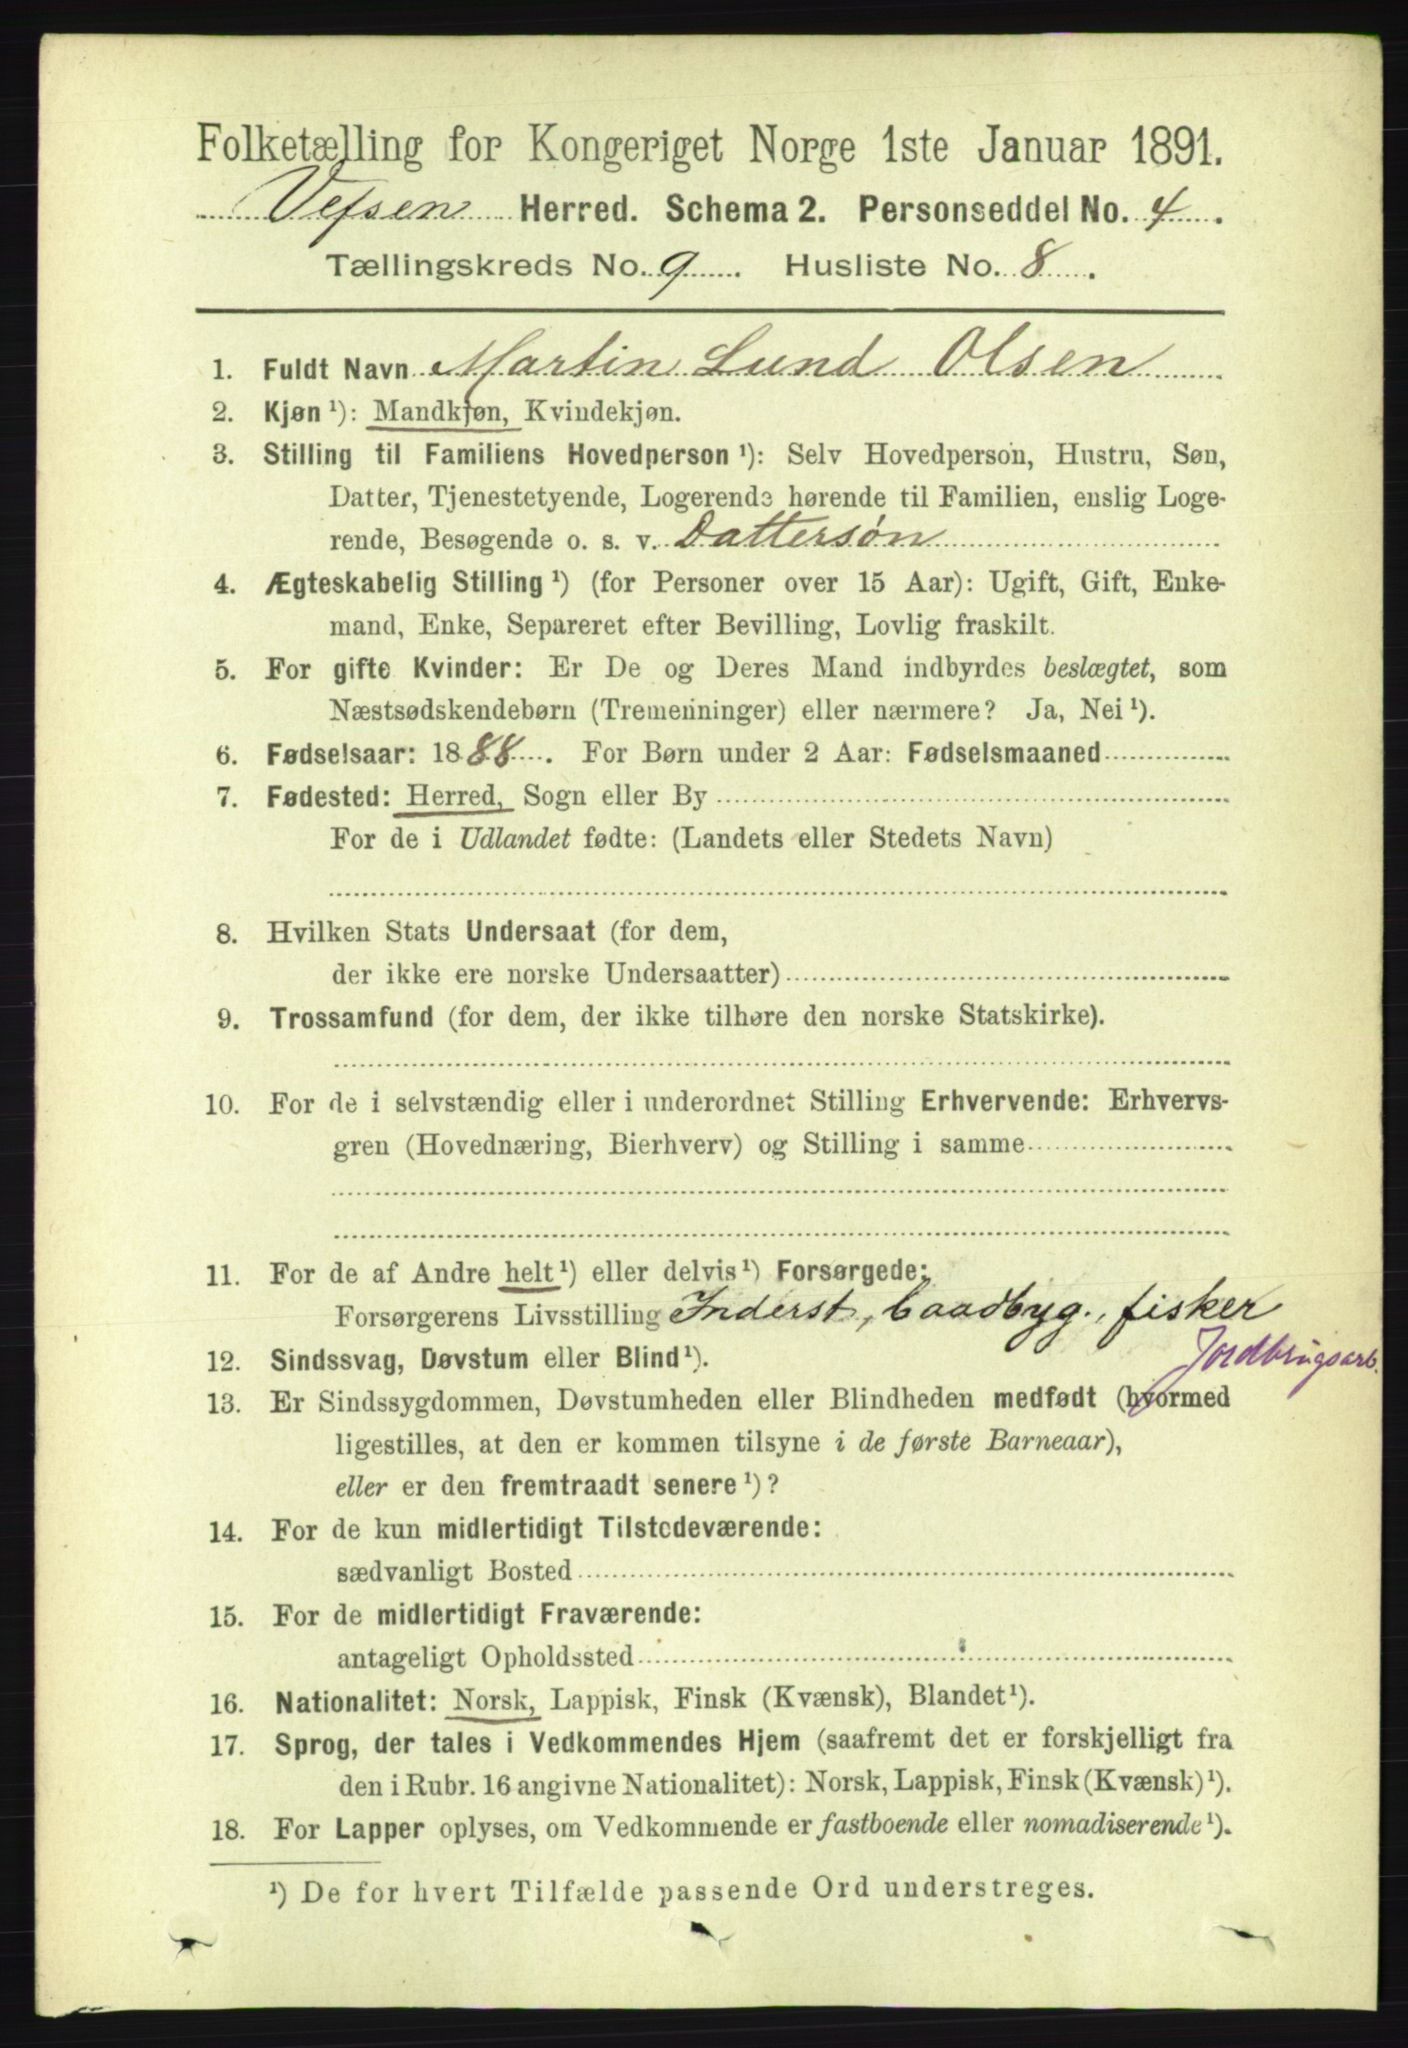 Folketælling for Kongeriget Norge 1ste Januar 1891.
Vefsen Herred. Schema 2. Personseddel No. 4.
Tællingskreds No. 9. Husliste No. 8.
1. Fuldt Navn Martin Lund Olsen
2. Kjøn ¹): Mandkjøn, Kvindekjøn.
3. Stilling til Familiens Hovedperson ¹): Selv Hovedperson, Hustru, Søn,
Datter, Tjenestetyende, Logerende hørende til Familien, enslig Loge-
rende, Besøgende o. s. v. Dattersøn
4. Ægteskabelig Stilling ¹) (for Personer over 15 Aar): Ugift, Gift, Enke-
mand, Enke, Separeret efter Bevilling, Lovlig fraskilt.
5. For gifte Kvinder: Er De og Deres Mand indbyrdes beslægtet, som
Næstsødskendebørn (Tremenninger) eller nærmere? Ja, Nei ¹).
6. Fødselsaar: 1888. For Børn under 2 Aar: Fødselsmaaned
7. Fødested: Herred, Sogn eller By
For de i Udlandet fødte: (Landets eller Stedets Navn)
8. Hvilken Stats Undersaat (for dem,
der ikke ere norske Undersaatter)
9. Trossamfund (for dem, der ikke tilhøre den norske Statskirke).
10. For de i selvstændig eller i underordnet Stilling Erhvervende: Erhvervs-
gren (Hovednæring, Bierhverv) og Stilling i samme
11. For de af Andre helt ¹) eller delvis ¹) Forsørgede:
Forsørgerens Livsstilling Inderst, baadbyg., fisker
Jordbrugsarb.
12. Sindssvag, Døvstum eller Blind ¹).
13. Er Sindssygdommen, Døvstumheden eller Blindheden medfødt (hvormed
ligestilles, at den er kommen tilsyne i de første Barneaar),
eller er den fremtraadt senere ¹)?
14. For de kun midlertidigt Tilstedeværende:
sædvanligt Bosted
15. For de midlertidigt Fraværende:
antageligt Opholdssted
16. Nationalitet: Norsk, Lappisk, Finsk (Kvænsk), Blandet ¹).
17. Sprog, der tales i Vedkommendes Hjem (saafremt det er forskjelligt fra
den i Rubr. 16 angivne Nationalitet): Norsk, Lappisk, Finsk (Kvænsk) ¹).
18. For Lapper oplyses, om Vedkommende er fastboende eller nomadiserende ¹).
¹) De for hvert Tilfælde passende Ord understreges.